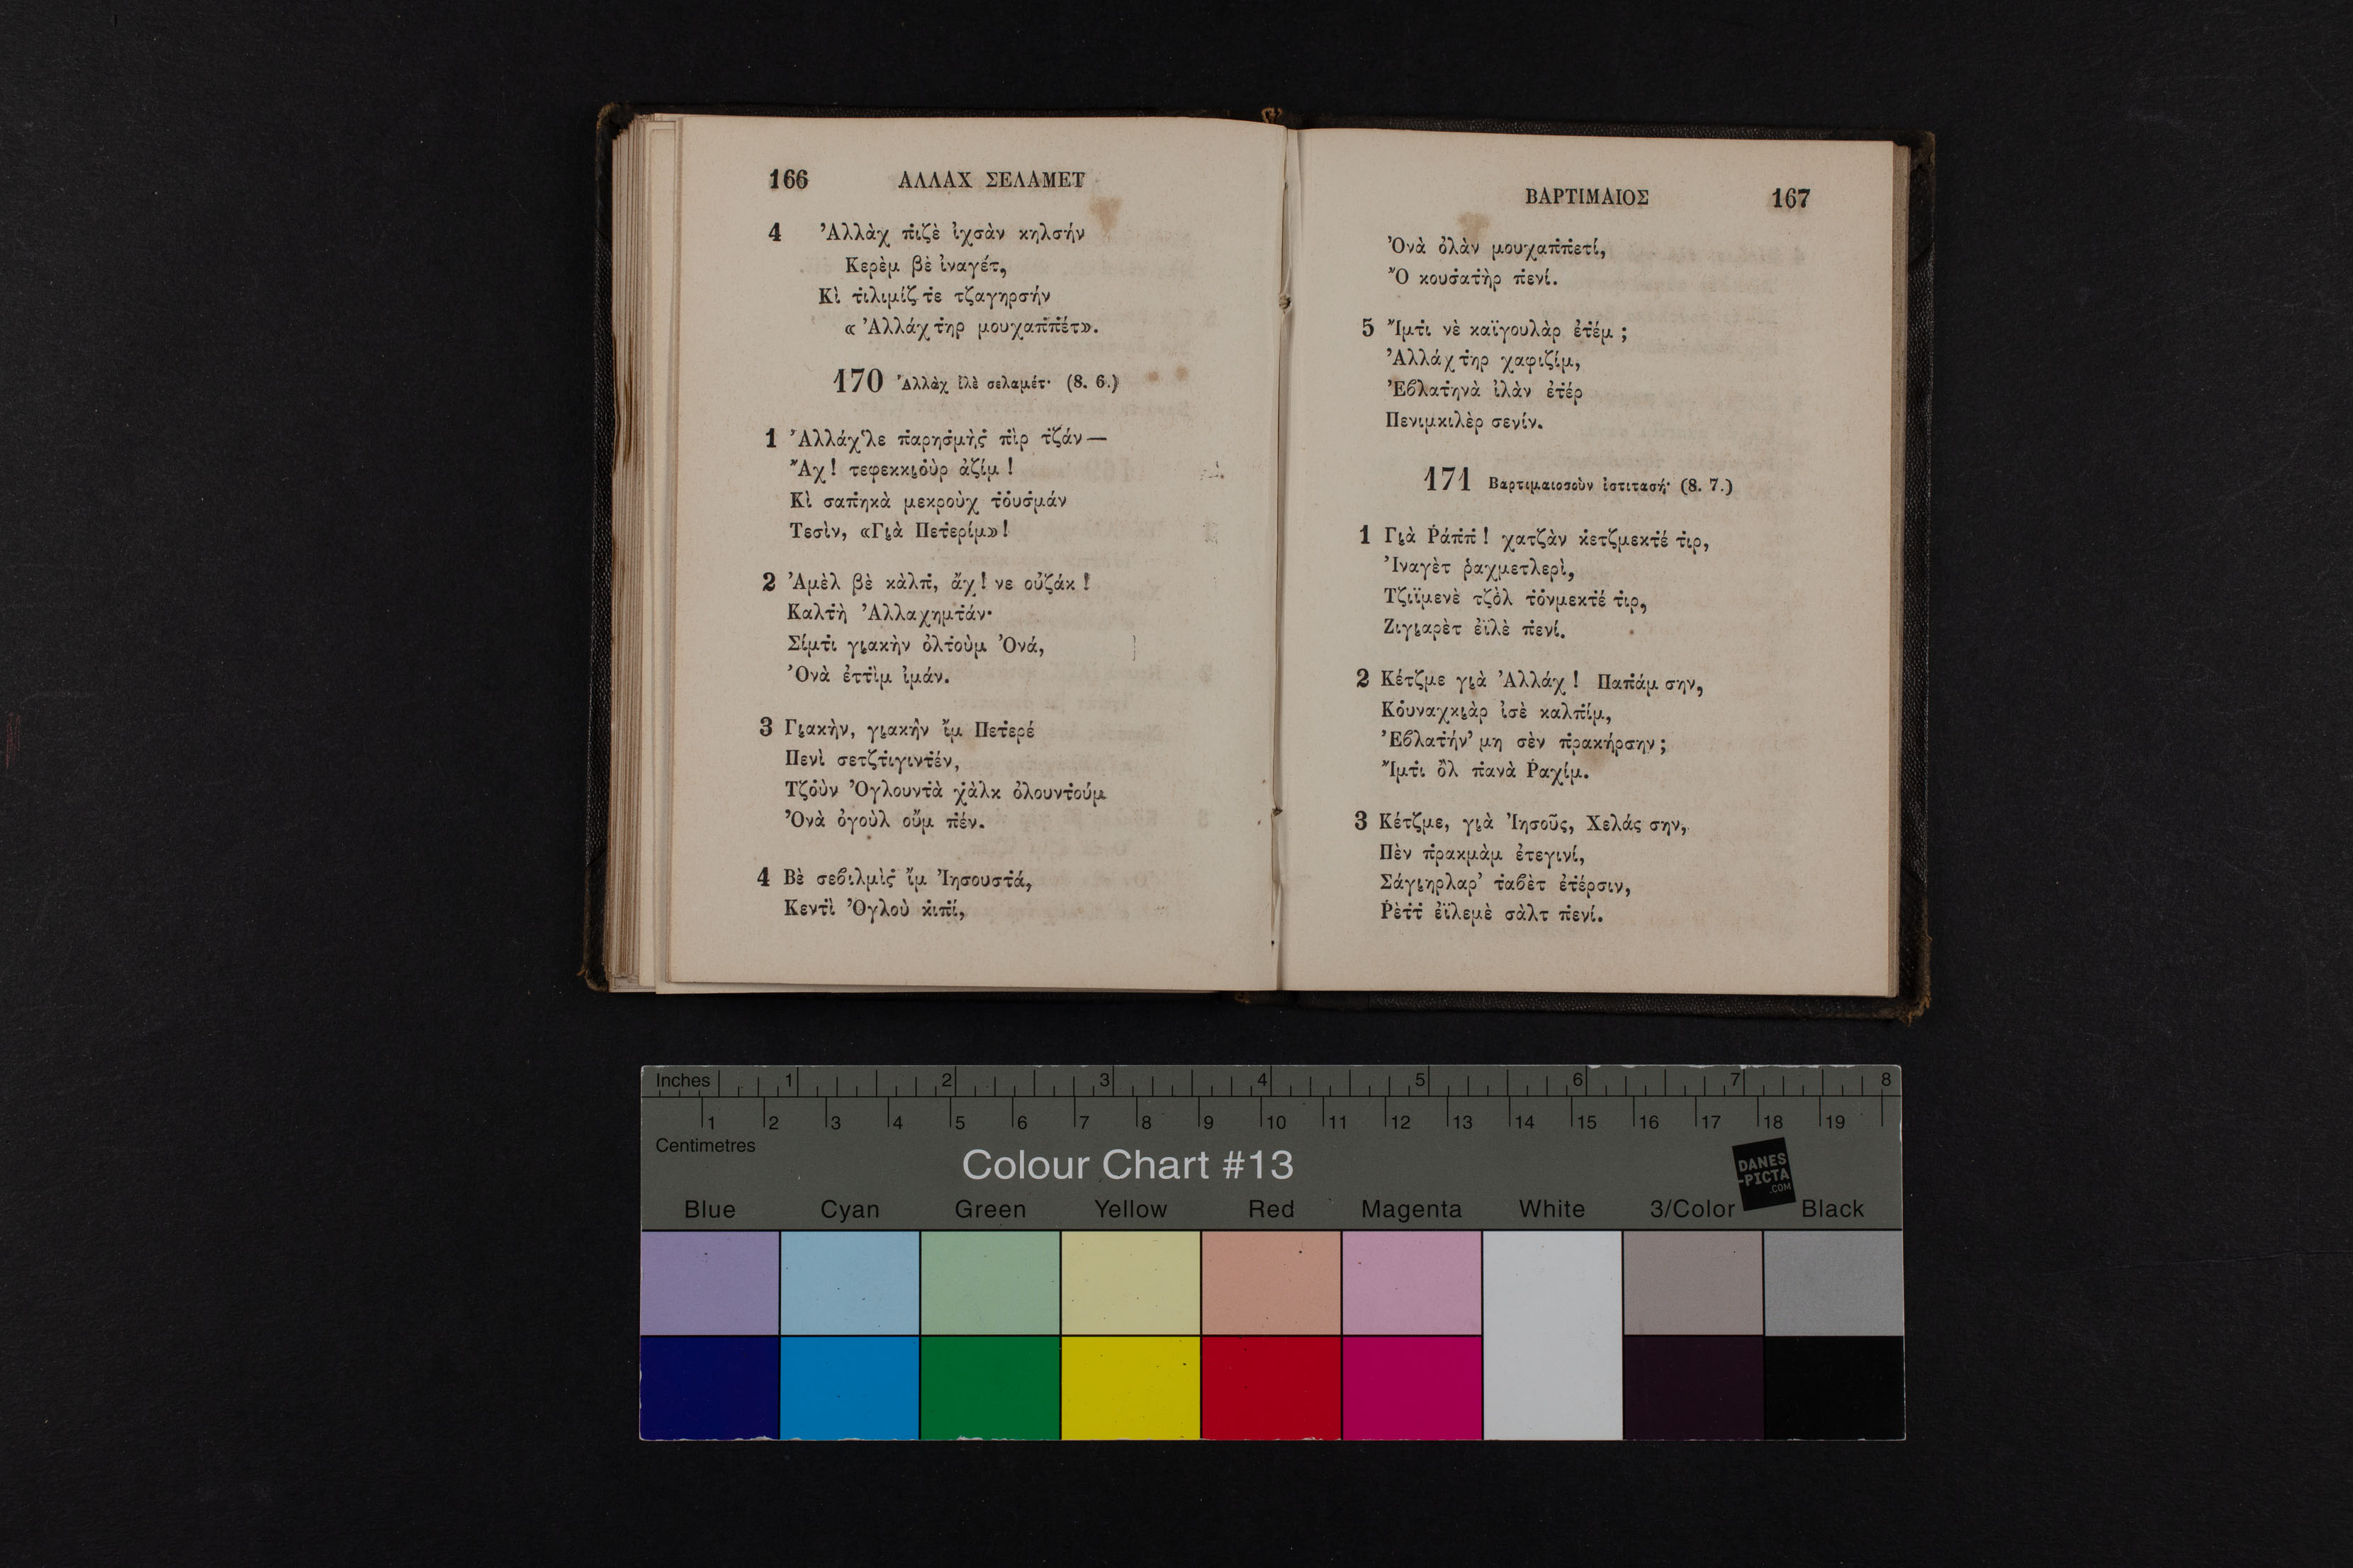 166 ΑΛΛΑΧ ΣΕΛΑΜΕΤ
4 Ἀλλὰχ π̇ιζὲ ἰχσὰν κηλσήν
Κερὲμ βὲ ἰναγέτ,
Κὶ τ̇ιλιμίζ τ̇ε τζαγηρσήν
« Ἀλλάχ τ̇ηρ μουχαπ̇π̇έτ».
170 Ἀλλὰχ ἰλὲ σελαμέτ· (8. 6.)
1 Ἀλλάχ'λε π̇αρησ̇μὴς̇ π̇ὶρ τ̇ζάν —
Ἄχ! τεφεκκι̤οὺρ ἀζίμ!
Κὶ σαπ̇ηκὰ μεκροὺχ τ̇ο̇υσ̇μάν
Τεσὶν, «Γι̤ὰ Πετ̇ερίμ»!
2 Ἀμὲλ βὲ κὰλπ̇, ἄχ! νε οὐζάκ!
Καλτ̇ὴ Ἀλλαχημτ̇άν·
Σίμτ̇ι γι̤ακὴν ὀλτ̇οὺμ Ὀνά,
Ὀνὰ ἐττ̇ὶμ ἰμάν.
3 Γι̤ακὴν, γι̤ακὴν ἴμ Πετ̇ερέ
Πενὶ σετζτ̇ιγιντ̇έν,
Τζο̇ὺν Ὀγλουντ̇ὰ χὰλκ ὀλουντ̇ούμ
Ὀνὰ ὀγοὺλ οὔμ π̇έν.
4 Βὲ σεβιλμὶς̇ ἴμ Ἰησουστ̇ά,
Κεντ̇ὶ Ὀγλοὺ κ̇ιπ̇ί,
ΒΑΡΤΙΜΑΙΟΣ 167
Ὀνὰ ὀλὰν μουχαπ̇π̇ετί,
Ὃ κουσ̇ατ̇ὴρ π̇ενί.
5 Ἴμτ̇ι νὲ καϊγουλὰρ ἐτ̇έμ ;
Ἀλλάχ τ̇ηρ χαφιζίμ,
Ἐβλατ̇ηνὰ ἰλὰν ἐτ̇έρ
Πενιμκιλὲρ σενίν.
171 Βαρτιμαιοσοὺν ἰστιτασή· (8. 7.)
1 Γι̤ὰ Ῥάπ̇π̇! χατζὰν κ̇ετζμεκτ̇έ τ̇ιρ,
Ἰναγὲτ ῥαχμετλερὶ,
Τζιϊμενὲ τζὸλ τ̇ο̇νμεκτ̇έ τ̇ιρ,
Ζιγι̤αρὲτ ἐϊλὲ π̇ενί.
2 Κέτζμε γι̤ὰ Ἀλλάχ! Παπ̇άμ σην,
Κο̇υναχκι̤ὰρ ἰσὲ καλπ̇ίμ,
Ἐβλατ̇ήν' μη σὲν π̇ρακήρσην ;
Ἴμτ̇ι ὂλ π̇ανὰ Ῥαχίμ.
3 Κέτζμε, γι̤ὰ Ἰησοῦς, Χελάς σην,
Πὲν π̇ρακμὰμ ἐτεγινί,
Σάγι̤ηρλαρ' τ̇αβὲτ ἐτ̇έρσιν,
Ῥὲτ̇τ̇ ἐϊλεμὲ σὰλτ π̇ενί.
Inches 1 2 3 4 5 6 7 8
1 2 3 4 5 6 7 8 9 10 11 12 13 14 15 16 17 18 19
Centimetres
Colour Chart #13
DANES
-PICTA
.COM
Blue Cyan Green Yellow Red Magenta White 3/Color Black